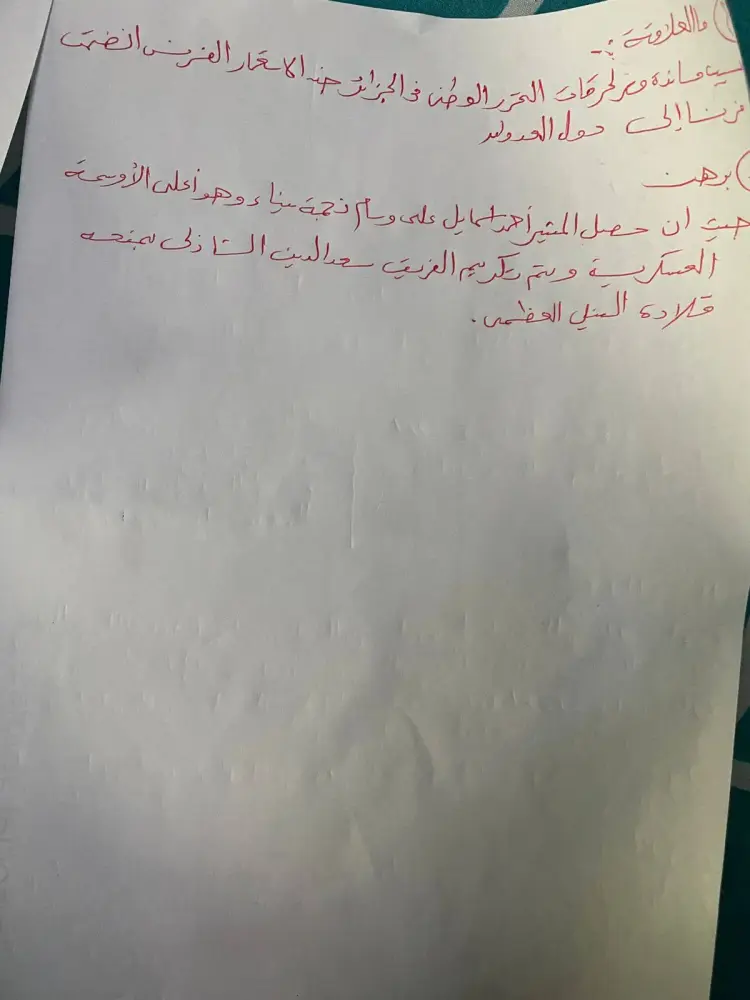 ما العلاقة :-
بسبب مساندة مصر لحركات التحرر الوطنى فى الجزائر ضد الاستعمار الفرنسى انضمت
فرنسا إلى دول العدوان
برهن
حيث ان حصل المشير أحمد اسماعيل على وسام نجمة سيناء وهو أعلى الأوسمة
العسكرية وتم تكريم الفريق سعد الدين الشاذلى بمنحه
قلادة النيل العظمى.